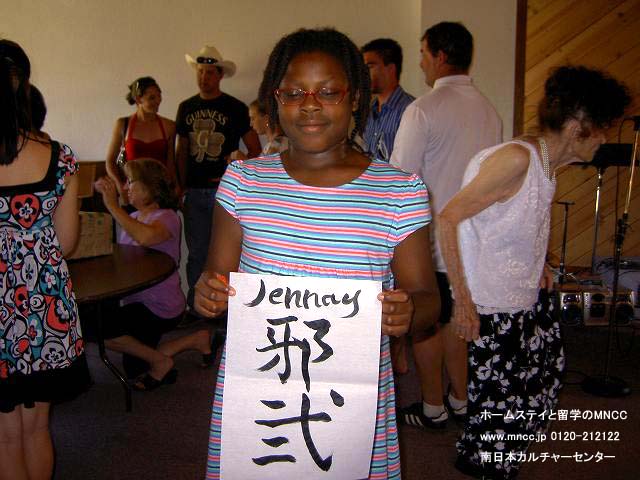 GUINNESS
Jennay
邪
弐
ホームステイと留学のMNCC
www.mncc.jp 0120-212122
南日本カルチャーセンター